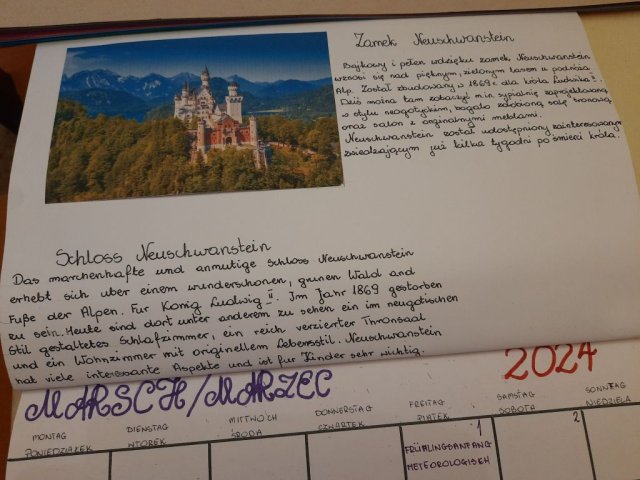 Zamek Neuschwanstein
Bajkowy i pełen wdzięku zamek Neuschwanstein
wznosi się nad pięknym, zielonym lasem u podnóża
Alp. Został zbudowany w 1869 r. dla króla Ludwika II.
Dziś można tam zobaczyć m.in. sypialnię zaprojektowaną
w stylu neogotyckim, bogato zdobioną salę tronową
oraz salon z oryginalnymi meblami.
Neuschwanstein został udostępniony zainteresowanym
zwiedzającym już kilka tygodni po śmierci króla.
Schloss Neuschwanstein
Das marchenhafte und anmutige schloss Neuschwanstein
erhebt sich uber einem wunderschonen, grunen Wald and
Fuße der Alpen. Fur Konig Ludwig II. Jm Jahr 1869 gestorben
zu sein. Heute sind dort unter anderem zu sehen ein im neugotischen
Stil gestaltetes Schlafzimmer, ein reich verzierter Thronsaal
und ein Wohnzimmer mit originellem Lebensstil. Neuschwanstein
hat viele interessante Aspekte und ist fur Kinder sehr wichtig.
MARSCH/MARZEC 2024
MONTAG DIENSTAG MITTWOCH DONNERSTAG FREITAG SAMSTAG SONNTAG
PONIEDZIAŁEK WTOREK ŚRODA CZWARTEK PIĄTEK SOBOTA NIEDZIELA
1 2
FRÜHLINGSANFANG
METEOROLOGISEH